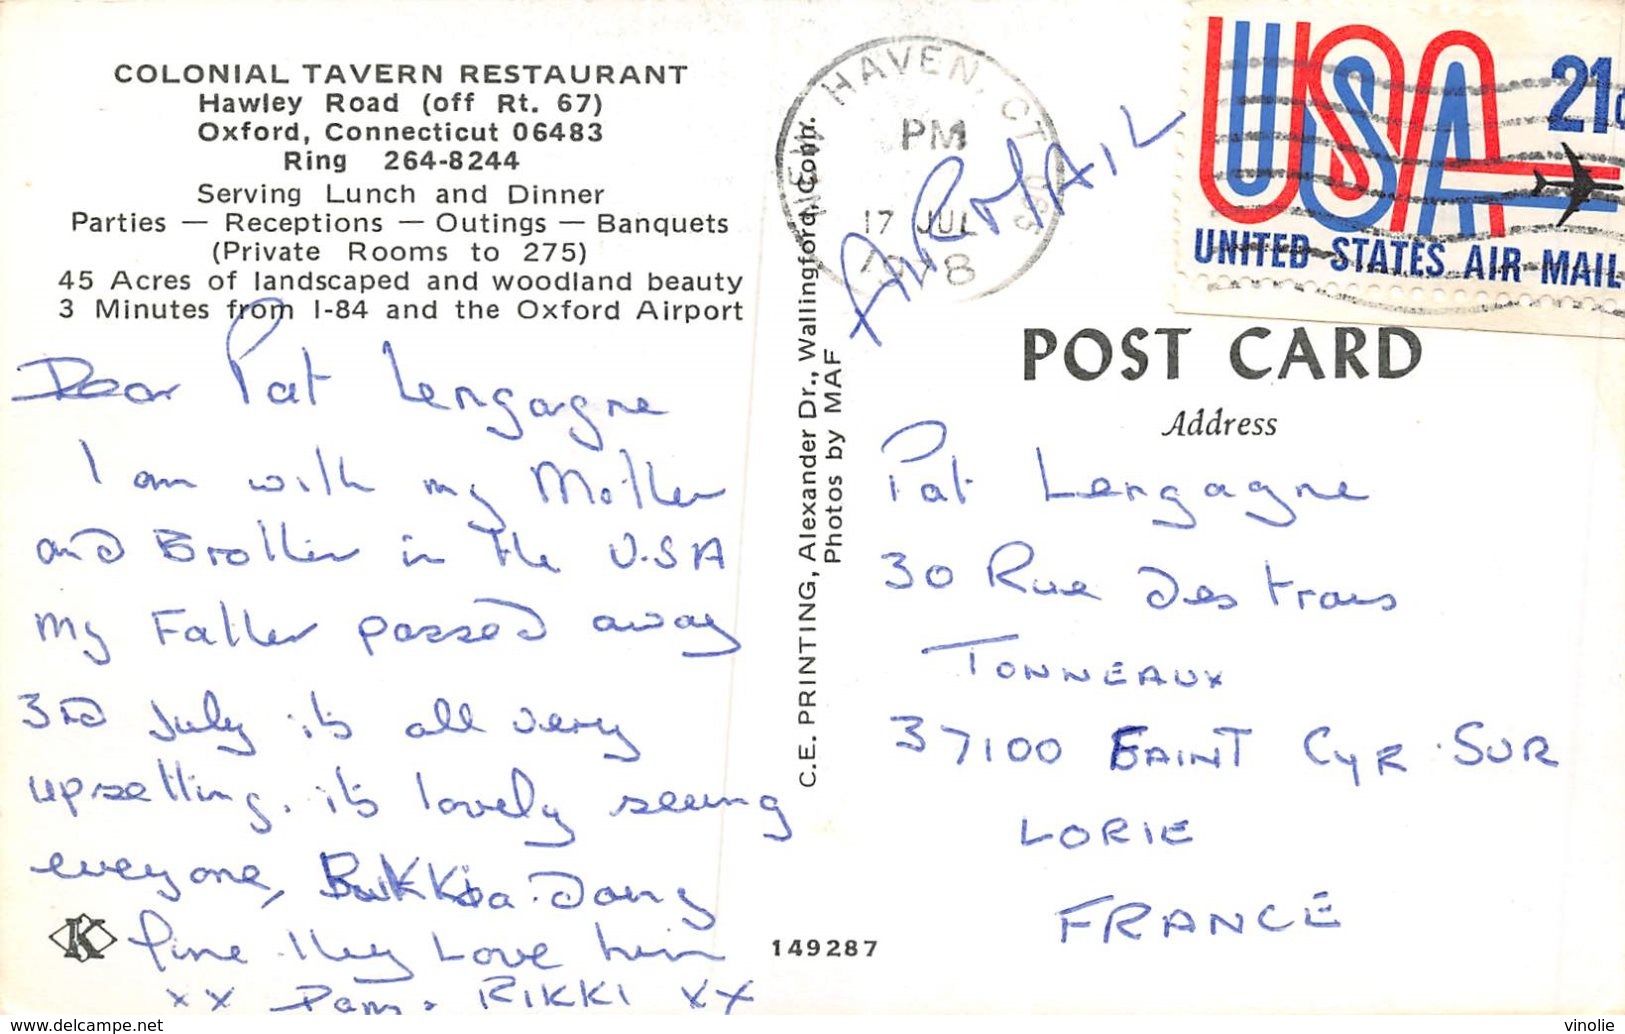 COLONIAL TAVERN RESTAURANT
Hawley Road (off Rt. 67)
Oxford, Connecticut 06483
Ring 264-8244
Serving Lunch and Dinner
Parties — Receptions — Outings — Banquets
(Private Rooms to 275)
45 Acres of landscaped and woodland beauty
3 Minutes from I-84 and the Oxford Airport
Dear Pat Lengagne
I am with my Mother
and Brother in the U.S.A
my Father passed away
3rd July it's all very
upsetting. it's lovely seeing
everyone, doing
fine they Love him
xx Pam. RIKKI xx
K
149287
C.E. PRINTING, Alexander Dr., Wallingford, Conn.
Photos by MAF
NEW HAVEN, CT
PM
17 JUL
AIRMAIL
USA 21¢
UNITED STATES AIR MAIL
POST CARD
Address
Pat Lengagne
30 Rue des trois
TONNEAUX
37100 SAINT CYR SUR
LORIE
FRANCE
https://www.delcampe.net
vinolie